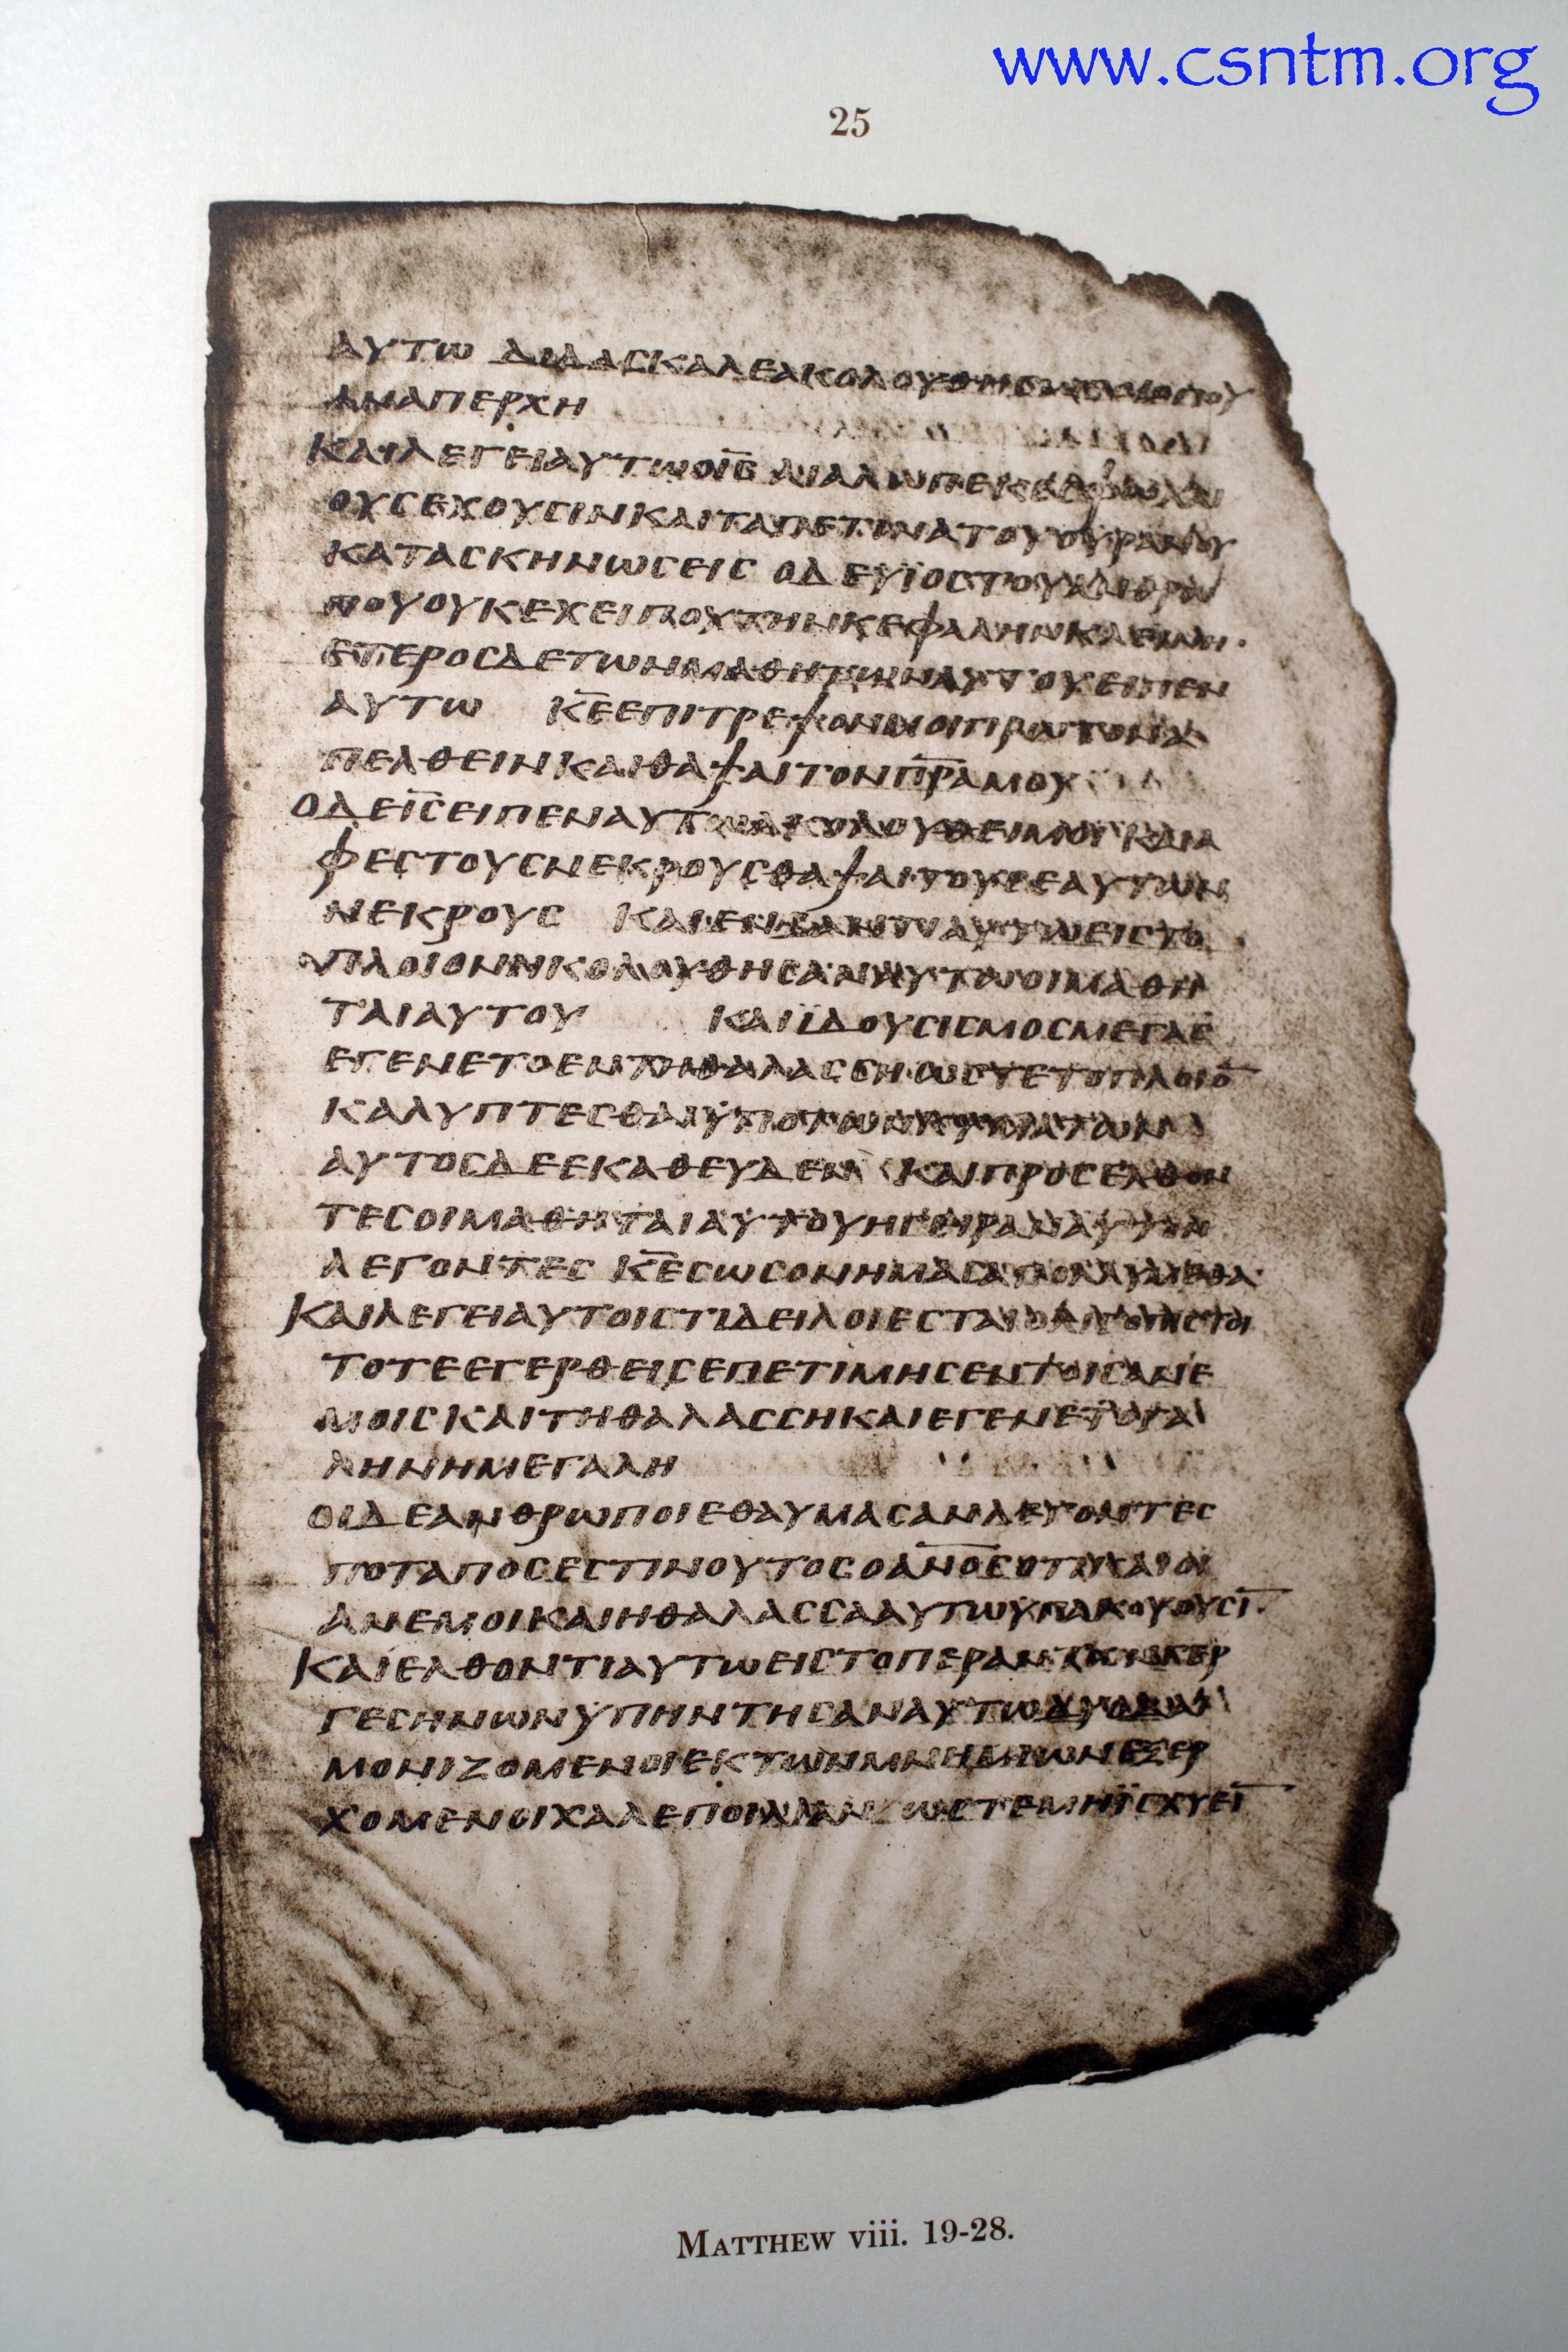 www.csntm.org
25
ΑΥΤΩ ΔΙΔΑCΚΑΛΕΑΚΟΛΟΥΘΗCΩCΟΙΟΠΟΥ
ΑΝΑΠΕΡΧΗ
ΚΑΙΛΕΓΕΙΑΥΤΩΟΙ̅C̅ ΑΙΑΛΩΠΕΚΕC
ΟΥCΕΧΟΥCΙΝΚΑΙΤΑΠΕΤΙΝΑΤΟΥΟΥΡΑΝΟΥ
ΚΑΤΑCΚΗΝΩCΕΙC ΟΔΕΥΪΟCΤΟΥΑΝΘΡΩ
ΠΟΥΟΥΚΕΧΕΙΠΟΥΤΗΝΚΕΦΑΛΗΝΚΛΕΙΝΗ·
ΕΤΕΡΟCΔΕΤΩΝΜΑΘΗΤΩΝΑΥΤΟΥΕΙΠΕΝ
ΑΥΤΩ Κ̅Ε̅ΕΠΙΤΡΕΨΟΝΜΟΙΠΡΩΤΟΝΑ
ΠΕΛΘΕΙΝΚΑΙΘΑΨΑΙΤΟΝΠ̅Ρ̅ΑΜΟΥ
ΟΔΕΙ̅C̅ΕΙΠΕΝΑΥΤΩΑΚΟΛΟΥΘΕΙΜΟΙΚΑΙΑ
ΦΕCΤΟΥCΝΕΚΡΟΥCΘΑΨΑΙΤΟΥCΕΑΥΤΩΝ
ΝΕΚΡΟΥC ΚΑΙΕΝΒΑΝΤΙΑΥΤΩΕΙCΤΟ
ΠΛΟΙΟΝΗΚΟΛΟΥΘΗCΑΝΑΥΤΩΟΙΜΑΘΗ
ΤΑΙΑΥΤΟΥ ΚΑΙΪΔΟΥCΙCΜΟCΜΕΓΑC
ΕΓΕΝΕΤΟΕΝΤΗΘΑΛΑCCΗΩCΤΕΤΟΠΛΟΙΟ̅
ΚΑΛΥΠΤΕCΘΑΙΫΠΟΤΩΝΚΥΜΑΤΩΝ
ΑΥΤΟCΔΕΕΚΑΘΕΥΔΕΝ ΚΑΙΠΡΟCΕΛΘΟΝ
ΤΕCΟΙΜΑΘΗΤΑΙΑΥΤΟΥΗΓΕΙΡΑΝΑΥΤΟΝ
ΛΕΓΟΝΤΕC Κ̅Ε̅CΩCΟΝΗΜΑCΑΠΟΛΛΥΜΕΘΑ·
ΚΑΙΛΕΓΕΙΑΥΤΟΙCΤΙΔΕΙΛΟΙΕCΤΑΙΟΛΙΓΟΠΙCΤΟΙ
ΤΟΤΕΕΓΕΡΘΕΙCΕΠΕΤΙΜΗCΕΝΤΟΙCΑΝΕ
ΜΟΙCΚΑΙΤΗΘΑΛΑCCΗΚΑΙΕΓΕΝΕΤΟΓΑ
ΛΗΝΗΜΕΓΑΛΗ
ΟΙΔΕΑΝΘΡΩΠΟΙΕΘΑΥΜΑCΑΝΛΕΓΟΝΤΕC
ΠΟΤΑΠΟCΕCΤΙΝΟΥΤΟCΟΑ̅Ν̅Ο̅C̅ΟΤΙΚΑΙΟΙ
ΑΝΕΜΟΙΚΑΙΗΘΑΛΑCCΑΑΥΤΩΥΠΑΚΟΥΟΥCΙ̅·
ΚΑΙΕΛΘΟΝΤΙΑΥΤΩΕΙCΤΟΠΕΡΑΝ
ΓΕCΗΝΩΝΫΠΗΝΤΗCΑΝΑΥΤΩΔΥΟΔΑΙ
ΜΟΝΙΖΟΜΕΝΟΙΕΚΤΩΝΜΝΗΜΙΩΝΕΞΕΡ
ΧΟΜΕΝΟΙΧΑΛΕΠΟΙΛΙΑΝ ΩCΤΕΜΗΪCΧΥΕΙ̅
MATTHEW viii. 19-28.